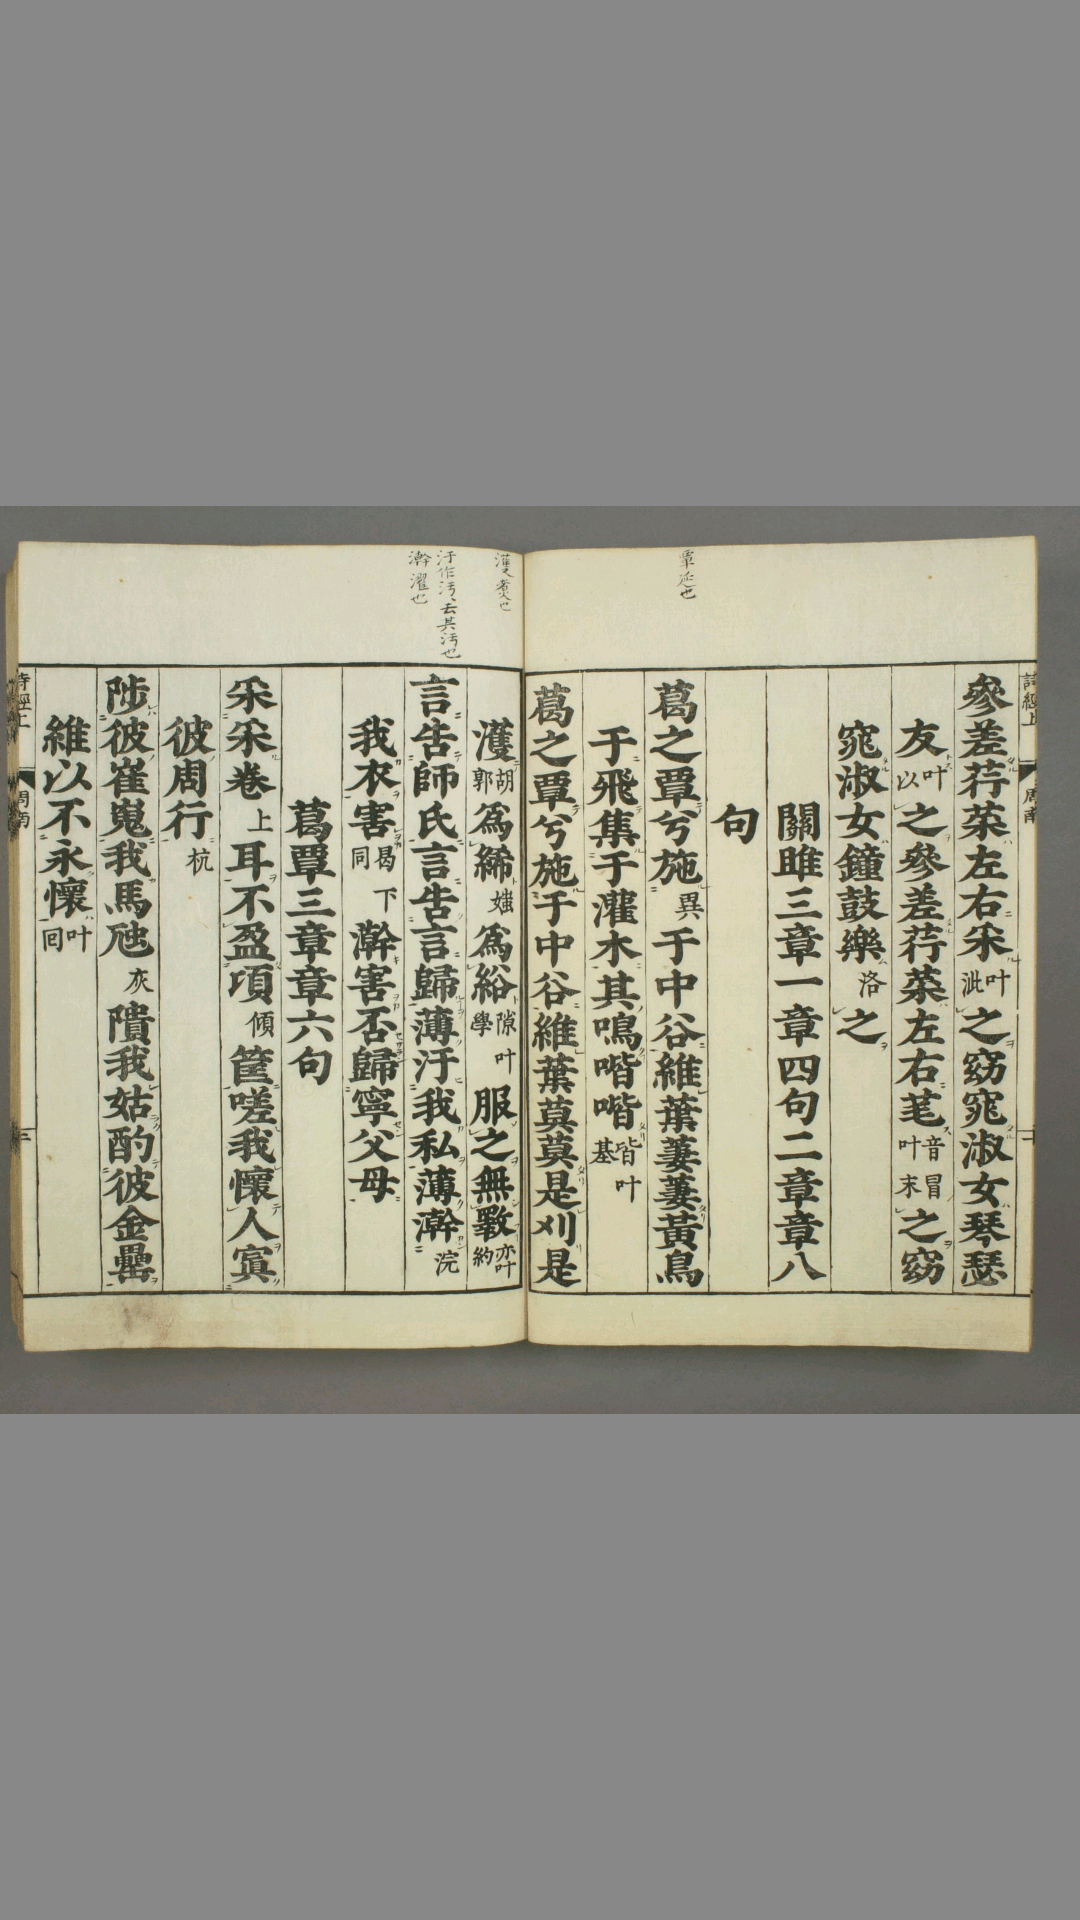 覃延也
參差荇菜左右采叶泚之窈窕淑女琴瑟
友叶以之參差荇菜左右芼音冒叶末之窈
窕淑女鐘鼓樂洛之
關雎三章一章四句二章章八
句
葛之覃兮施異于中谷維葉萋萋黃鳥
于飛集于灌木其鳴喈喈皆叶基
葛之覃兮施于中谷維葉莫莫是刈是
濩煮也
汙作汚、去其汚也
澣濯也
濩胡郭爲絺爲綌隙叶學服之無斁亦叶約
言告師氏言告言歸薄汙我私薄澣浣
我衣害曷同下澣害否歸寧父母
葛覃三章章六句
采采卷上耳不盈頃傾筐嗟我懷人寘
彼周行杭
陟彼崔嵬我馬虺灰隤我姑酌彼金罍
維以不永懷叶回
詩經上
周南